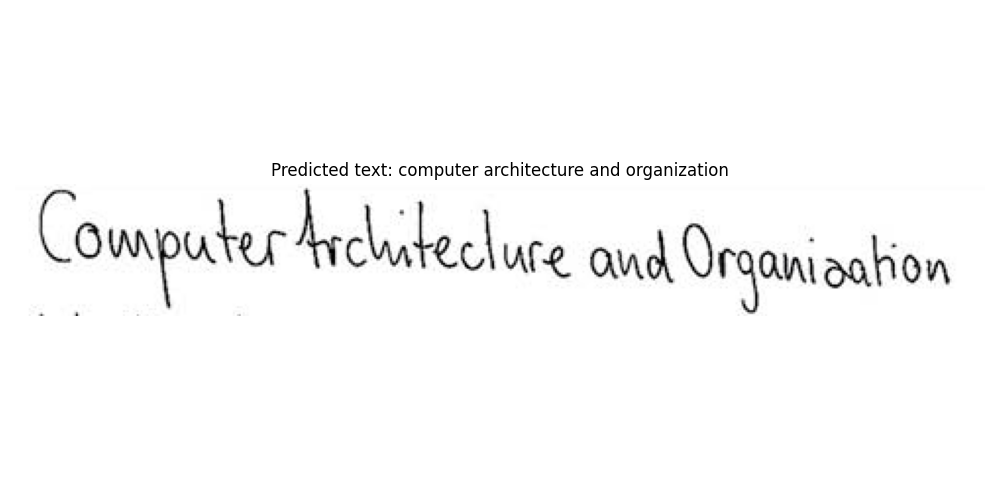 Predicted text: computer architecture and organization
Computer Architecture and Organisation